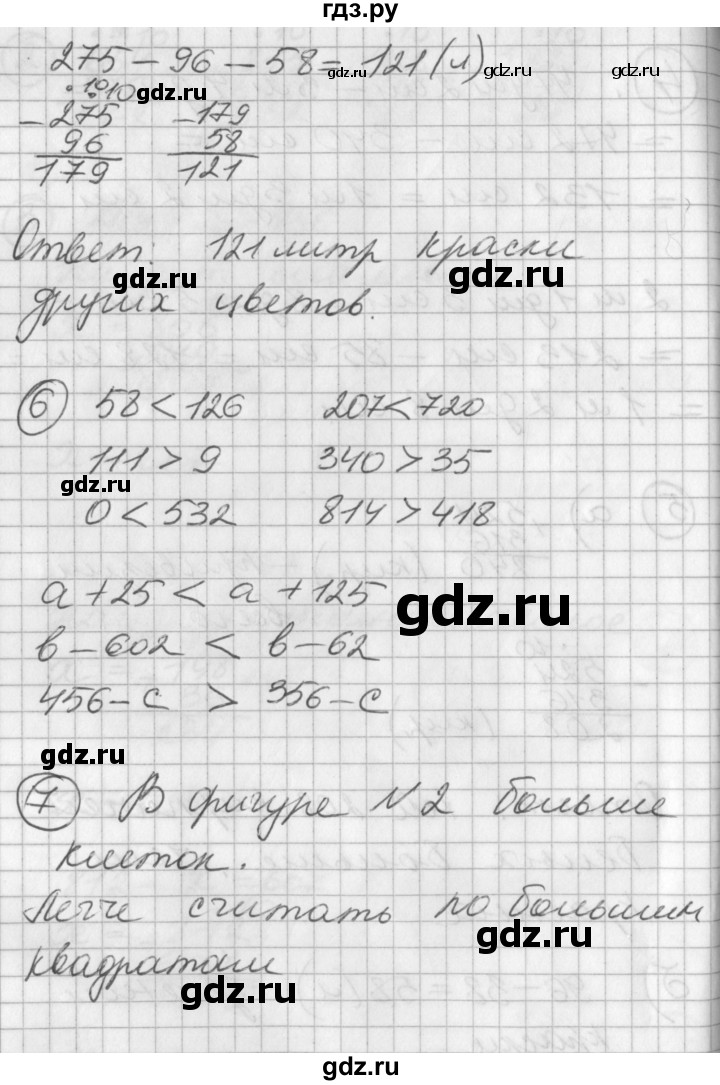 гдз.ру
275 − 96 − 58 = 121 (л)
gdz.ru
10 10 gdz.ru
− 275 − 179
96 58
179 121
Ответ: 121 литр краски
gdz.ru gdz.ru
других цветов.
6 58 < 126 207 < 720
111 > 9 340 > 35
gdz.ru
0 < 532 814 > 418
a + 25 < a + 125
gdz.ru
в − 602 < в − 62
456 − с > 356 − с
gdz.ru
7 В фигуре №2 больше
клеток.
Легче считать по большим
gdz.ru
квадратам
gdz.ru
gdz.ru